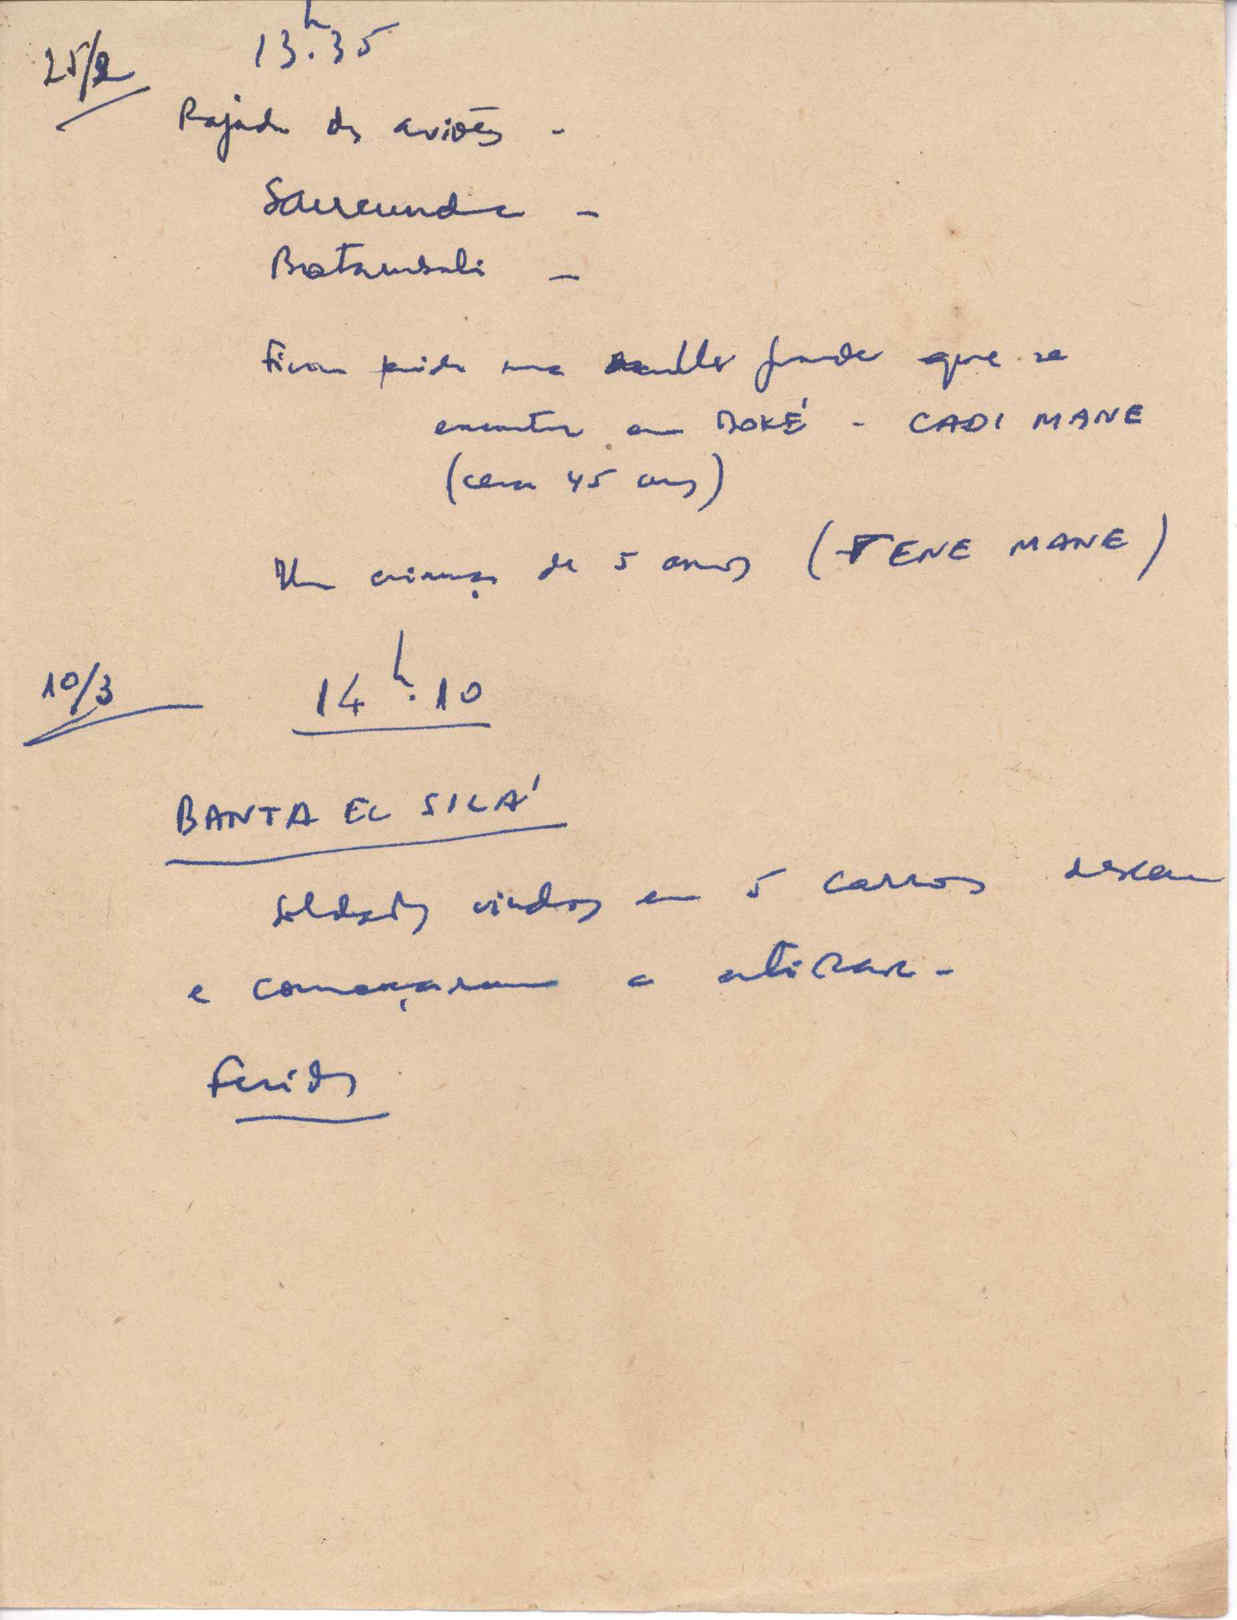 25/2 13h.35
Rajada de aviões -
Saurcunda -
Botambali -
Ficou ferida uma mulher grande que se
encontra em BOKÉ - CADI MANE
(cerca 45 anos)
Uma criança de 5 anos (TENE MANE)
10/3 14h.10
BANTA EL SILÁ
Soldados vindos em 5 carros descem
e começaram a atirar -
Feridos